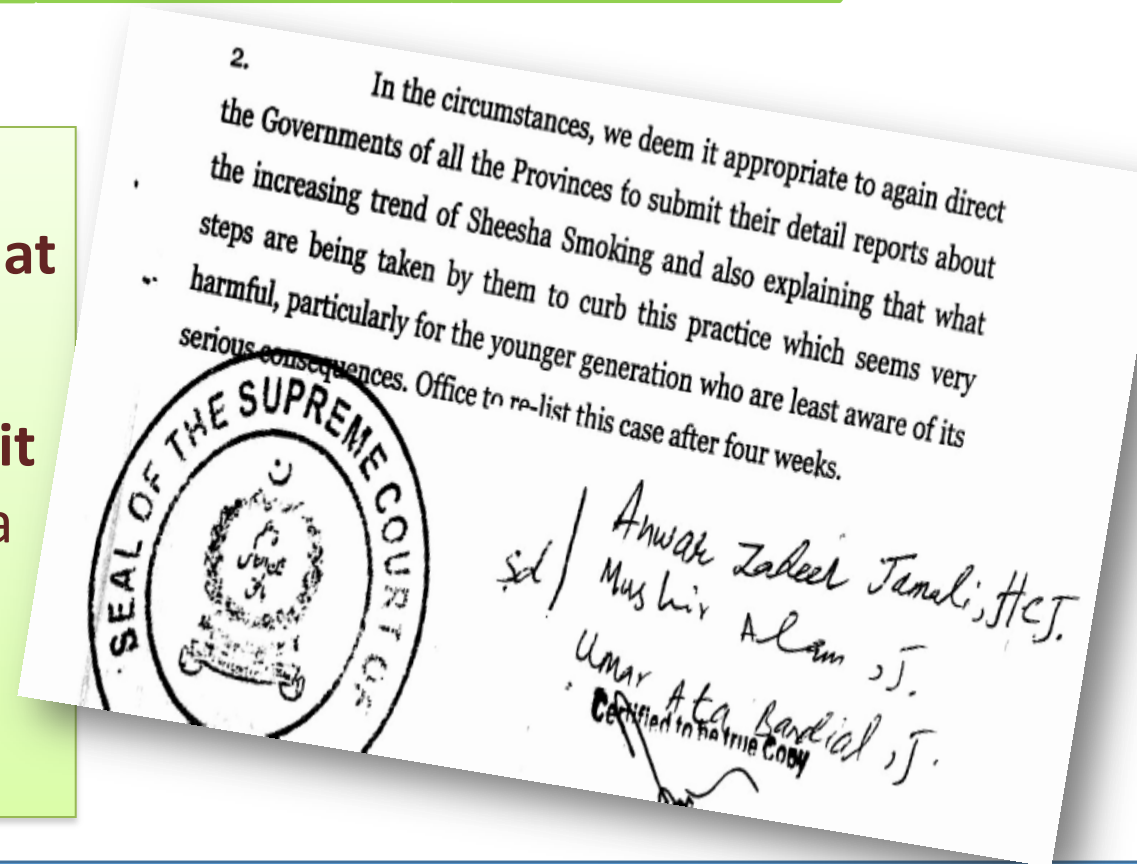 at
it
a
2.
In the circumstances, we deem it appropriate to again direct
the Governments of all the Provinces to submit their detail reports about
the increasing trend of Sheesha Smoking and also explaining that what
steps are being taken by them to curb this practice which seems very
harmful, particularly for the younger generation who are least aware of its
serious consequences. Office to re-list this case after four weeks.
SEAL OF THE SUPREME COURT OF
Sd/
Anwar Zaheer Jamali, HCJ.
Mushir Alam, J.
Umar Ata Bandial, J.
Certified to be true Copy